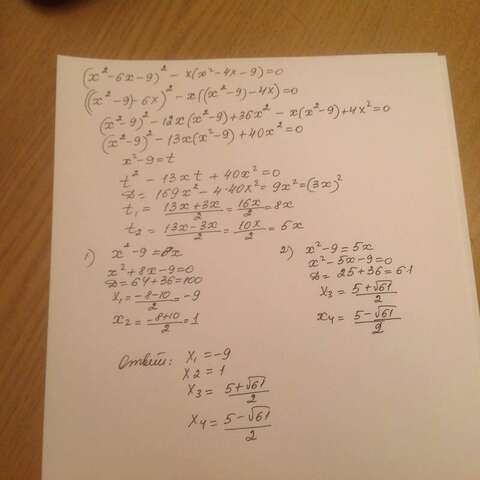 (x² - 6x - 9)² - x(x² - 4x - 9) = 0
((x² - 9) - 6x)² - x((x² - 9) - 4x) = 0
(x² - 9)² - 12x(x² - 9) + 36x² - x(x² - 9) + 4x² = 0
(x² - 9)² - 13x(x² - 9) + 40x² = 0
x² - 9 = t
t² - 13xt + 40x² = 0
D = 169x² - 4·40x² = 9x² = (3x)²
t₁ = (13x + 3x)/2 = 16x/2 = 8x
t₂ = (13x - 3x)/2 = 10x/2 = 5x
1) x² - 9 = 8x
x² + 8x - 9 = 0
D = 64 + 36 = 100
x₁ = (-8 - 10)/2 = -9
x₂ = (-8 + 10)/2 = 1
2) x² - 9 = 5x
x² - 5x - 9 = 0
D = 25 + 36 = 61
x₃ = (5 + √61)/2
x₄ = (5 - √61)/2
Ответ: x₁ = -9
x₂ = 1
x₃ = (5 + √61)/2
x₄ = (5 - √61)/2